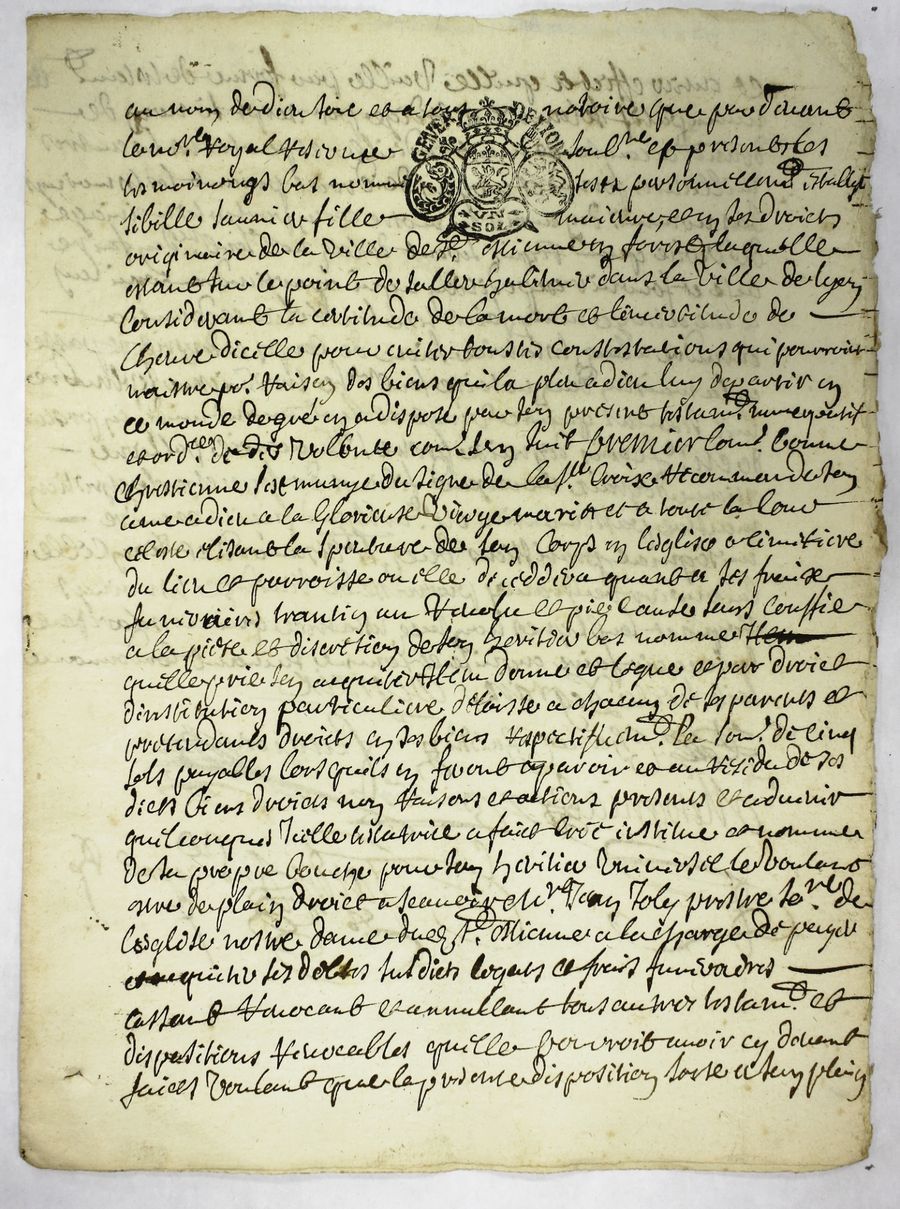 au nom de dieu soie et a tous notoire que par devant
le no.re royal
tesmoingts bas nommes personnellem.t establye
sibille saunier fille maieure, et en ses droicts
originaire de la ville de S.t estienne en forest laquelle
estant sur le point de saller habituer dans la ville de lyon
Considerant la certitude de la mort et lincertitude de
lheure dicelle pour eviter toustes contestations qui pourroint
naistre po.r raison des biens quil a pleu a dieu luy departir en
ce monde de gré en a dispose par son present testam.t
et ord.ce de de volonte com.e sen suit premierlem.t comme
Chrestienne sest munye du signe de la s.te Croix recommande son
ame a dieu a la Glorieuse Vierge marie et a toute la Cour
celeste elisant la sepulture de son Corps en lesglise o cimitiere
du lieu et parroisse ou elle deceddera quant a ses fraix
funeraires
a la pieté et discretion de son heritier bas nomme Item
quelle prie sen acquiter Item donne et legue et par droict
dinstitution particuliere delaisse a chacun de ses parents et
pretendants droicts en ses biens respectifvem.t la som.e de cinq
sols payables lors quils en feront aparoir et au residu de ses
dicts biens droicts noms raisons et actions presents et advenir
quelconques Icelle testatrice a faict créé institue et nomme
de sa propre bouche pour son heritier Universel le voulant
estre de plain droict a scavoir M.re Jean Joly prestre de
lesglise nostre dame dud S.t estienne a la charge de payer
et acquiter ses debtes susdicts legats et frais funeraires
cassant revocant et annullant tous autres testam.ts et
dispositions revocables quelle pourroit avoir cy devant
faicts voulant que la presente disposition sorte a son plein
GENER DE LYON
VN
SOL